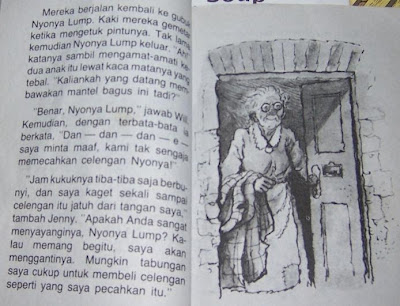 Mereka berjalan kembali ke gubuk
Nyonya Lump. Kaki mereka gemetar
ketika mengetuk pintunya. Tak lama
kemudian Nyonya Lump keluar. "Ah,"
katanya sambil mengamat-amati ke
dua anak itu lewat kaca matanya yang
tebal. "Kaliankah yang datang mem-
bawakan mantel bulus ini tadi?"
"Benar, Nyonya Lump," jawab Will.
Kemudian, dengan terbata-bata ia
berkata, "Dan — dan — dan — e —
saya minta maaf, kami tak sengaja
memecahkan celengan Nyonya!"
"Jam kukuknya tiba-tiba saja berbu-
nyi, dan saya kaget sekali sampai
celengan itu jatuh dari tangan saya,"
tambah Jenny. "Apakah Anda sangat
menyayanginya, Nyonya Lump? Ka-
lau memang begitu, saya akan
menggantinya. Mungkin tabungan
saya cukup untuk membeli celengan
seperti yang saya pecahkan itu."